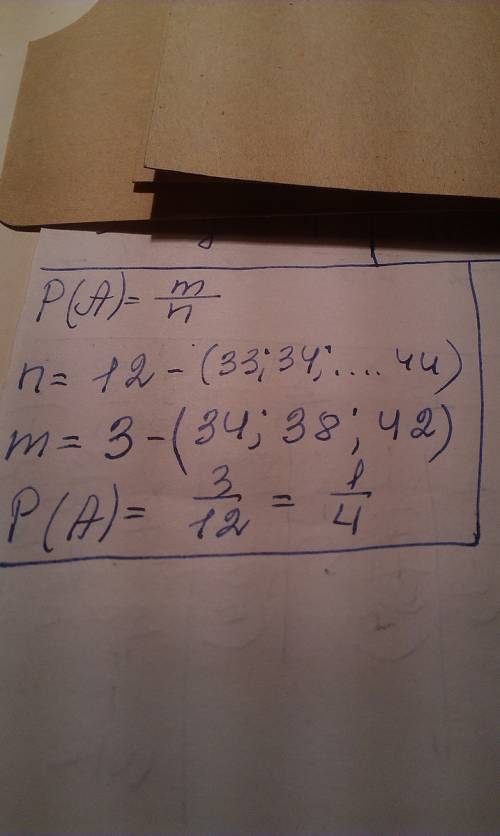 P(A) = m/n
n = 12 - (33; 34; .... 44)
m = 3 - (34; 38; 42)
P(A) = 3/12 = 1/4